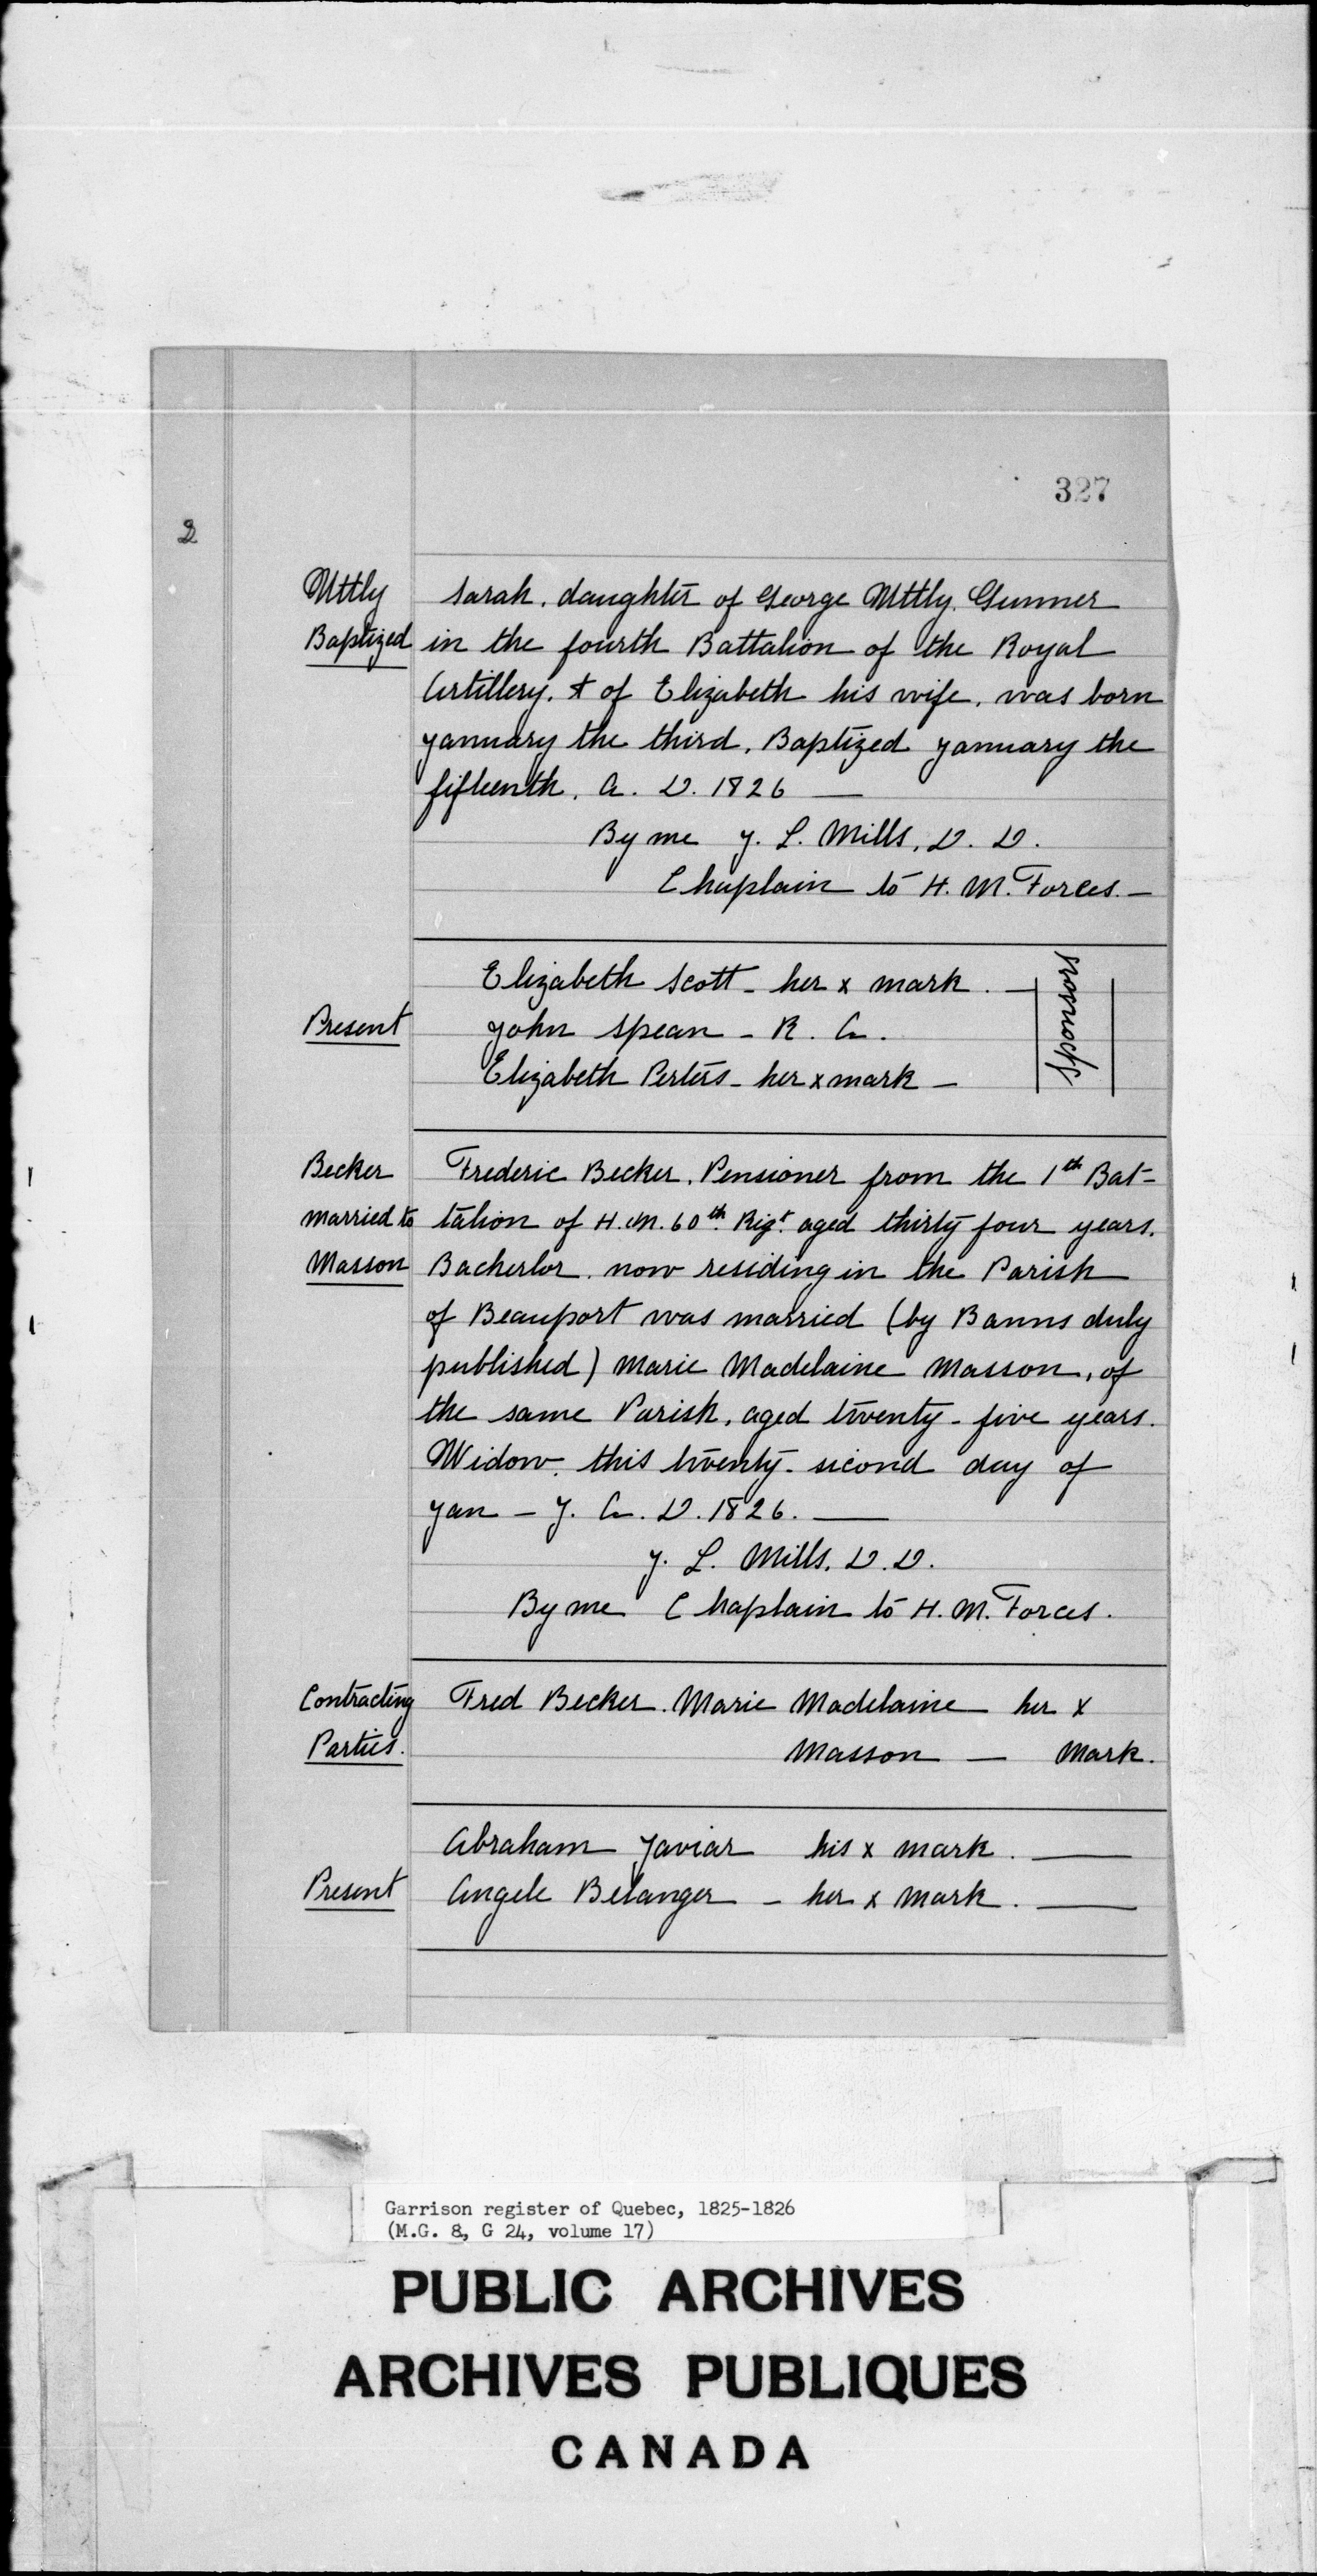 327
2
Uttly
Baptized
Sarah, daughter of George Uttly, Gunner
in the fourth Battalion of the Royal
Artillery, & of Elizabeth his wife, was born
January the third, Baptized January the
fifteenth, A. D. 1826 —
By me J. L. Mills, D. D.
Chaplain to H. M. Forces. —
Present
Elizabeth Scott - her x mark. —
John Spean - R. A.
Elizabeth Perters - her x mark —
Sponsors
Becker
married to
Masson
Frederic Becker, Pensioner from the 1th Bat-
talion of H. M. 60th Rigt aged thirty four years,
Bacherlor, now residing in the Parish
of Beauport was married (by Banns duly
published) Marie Madelaine Masson, of
the same Parish, aged twenty-five years.
Widow, this twenty-second day of
Jan - y. A. D. 1826. —
J. L. Mills, D. D.
By me Chaplain to H. M. Forces.
Contracting
Parties.
Fred Becker. Marie Madelaine her x
Masson — Mark.
Present
Abraham Javiar his x mark. —
Angele Belanger - her x mark. —
Garrison register of Quebec, 1825-1826
(M.G. 8, G 24, volume 17)
PUBLIC ARCHIVES
ARCHIVES PUBLIQUES
CANADA